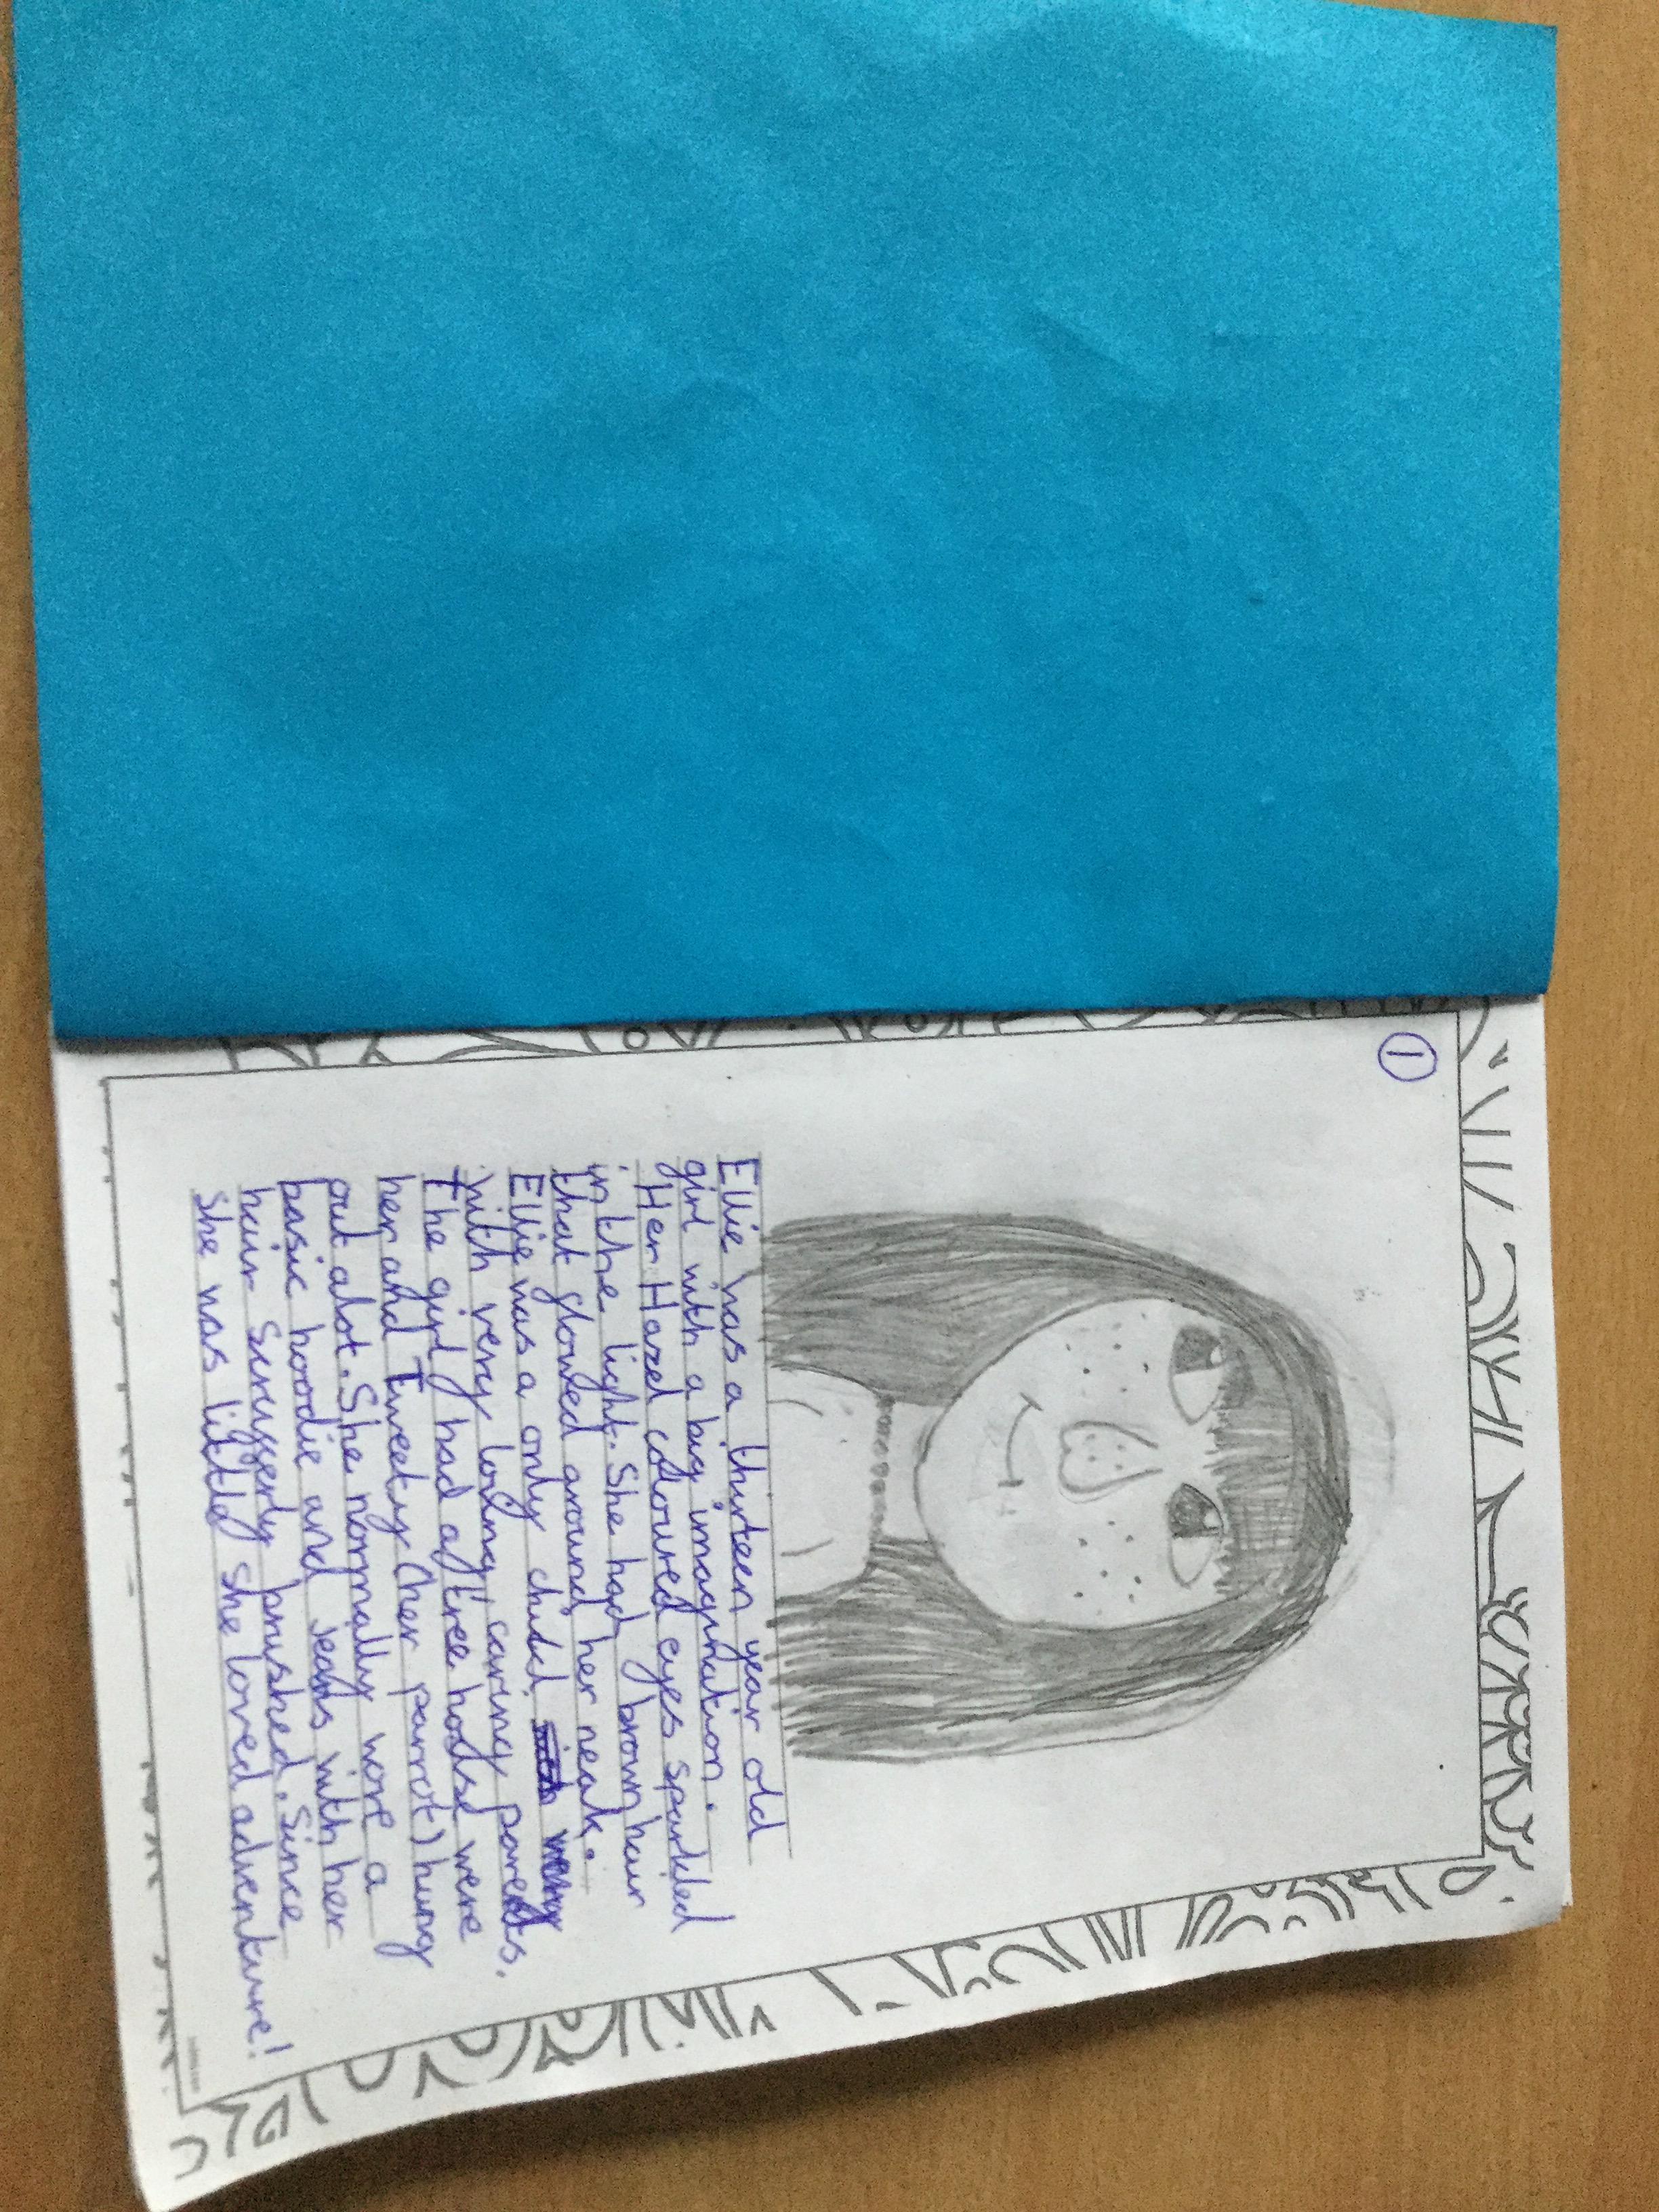 1
Ellie was a thirteen year old
girl with a big imagination.
Her Hazel coloured eyes sparkled
in the light. She had brown hair
that glowed around her neak.
Ellie was a only child
with very loving, caring parents.
The girl had a tree house were
her and Tweety (her parrot) hung
out alot. She normally wore a
basic hoodie and jeans with her
hair brushed. Since
she was little she loved adventure!